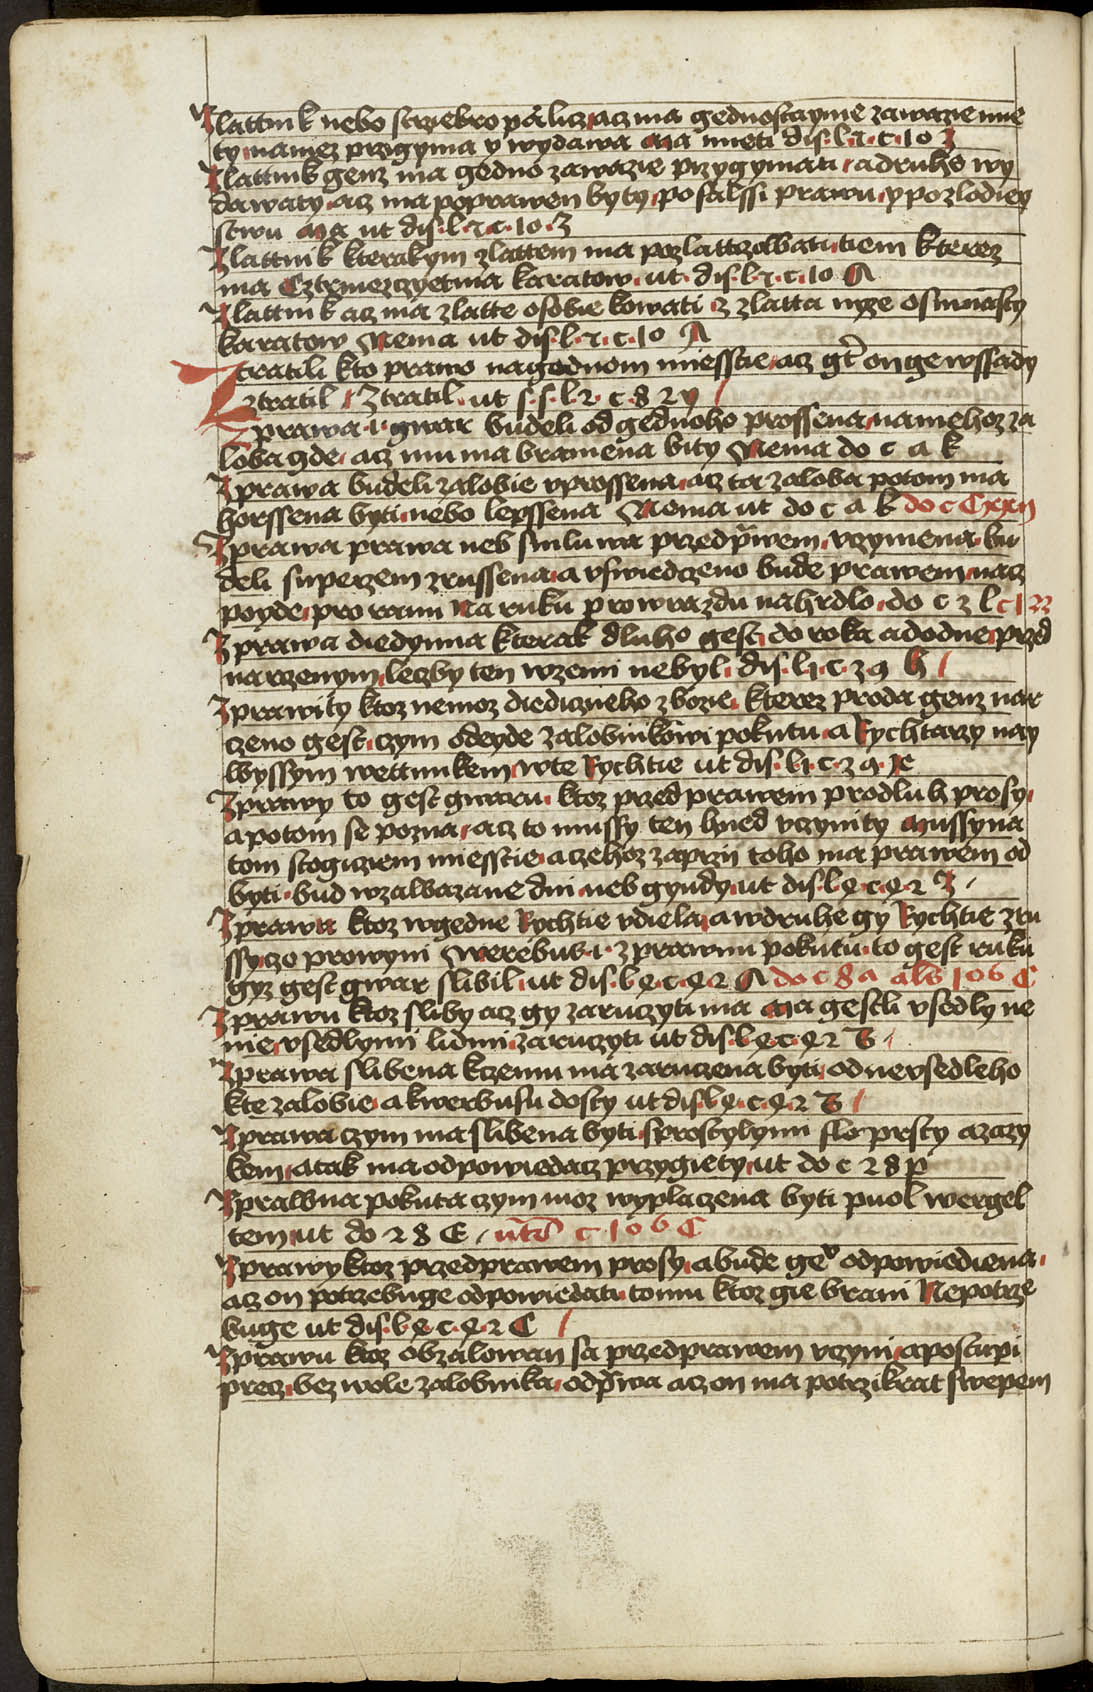 Zlattnik nebo strziebro palicz acz ma gednostayme zawazie mie
ty namez przigyma y wydawa Ma mieti dis. l. 2. c. 10 Z
Zlattnik genz ma gedno zawazie przygymati a druhe wy
dawaty acz ma poprawen byty po falssi prawu y pozlodiey
stwu Ma ut dis. l. 2. c. 10. Z
Zlattnik kterakym zlattem ma pozlattzowati tiem kterez
ma Cztrmezczyetma karatow ut dis. l. 2. c. 10 A
Zlattnik acz ma zlatte osobie kowati z zlatta nyze osmnasty
karatow Nema ut dis. l. 2. c. 10 A
Ztratili kto prawo nagednom miesstie acz gt on ge wssady
ztratil Ztratil ut s. s. l. 2. c. 8 2 y
Zprawa .i. gwar budeli od gednoho prossena namehoz za
loba gde acz mu ma bramena bity Nema do c a k
Zprawa budeli zalobie vprossena acz ta zaloba potom ma
horssena byti nebo lepssena Nema ut do c a k do c Cxxij
Zprawa prawa neb smluwa przed prwem vczynena bu
deli superzem zrussena a vswiedczeno bude prawem nacz
poyde pro ranu na ruku pro wrazdu na hrdlo do c z l c 1 22
Zprawa diedynna kterak dluho gest do roka a do dne przed
narzenym leczby ten wzemi nebyl dis. l 1 c. 2 9 h
Zprawity ktoz nemoz diediczneho zbozie kterez proda genz nar
czeno gest czym odeyde zalobnikowi pokutu a Rychtarzy nay
wyssym wettunkem wte Rychtie ut dis. l 1. c. 2 9. Je
Zprawy to gest gwaru ktoz przed prawem prodluh prosy
a potom se pozna acz to mussy ten hned vczynity Mussy na
tom stogiciem miesstie a czehoz zaprzij toho ma prawem od
byti bud wzawazane dni neb gyndy ut dis. l 9 c. 9 2 Z
Zprawu ktoz wgedne Rychtie vdiela a wdruhe gy Rychtie zru
ssy czo prowyni Werebus .i. zprawnu pokutu to gest ruku
gyz gest gwar slibil ut dis. l 9 c. 9 2 A do c 8 a alb 106 C
Zprawu ktoz sliby acz gy zaruczyti ma Ma gestli vsedly ne
nie vsedlymi lidmi zaruczyti ut dis. l 9 c. 9 2 B
Zprawa slibena kczemu ma zaruczena byti od nevsedleho
kte zalobie a kwerbusu dosty ut dis. l 9. c. 9 2 B
Zprawa czym ma slibena byti sprostylymi slo prsty a zazy
kem a tak ma odpowiedacz przygiety ut do c 2 8 p
Zprawna pokuta czym moz wyplaczena byti puol wergel
tem ut do 2 8 E utc c 106 C
Zprawy ktoz przed prawem prosy a bude ge odpowiediena
acz on potrzebuge odpowiedati tomu ktoz gie brani Nepotrze
buge ut dis. l 9 c. 9 2 C
Zprawu ktoz obzalowan sa przed prawem vczyni a postupi
precz bez wole zalobnika odprwa acz on ma potrzikrat swepem